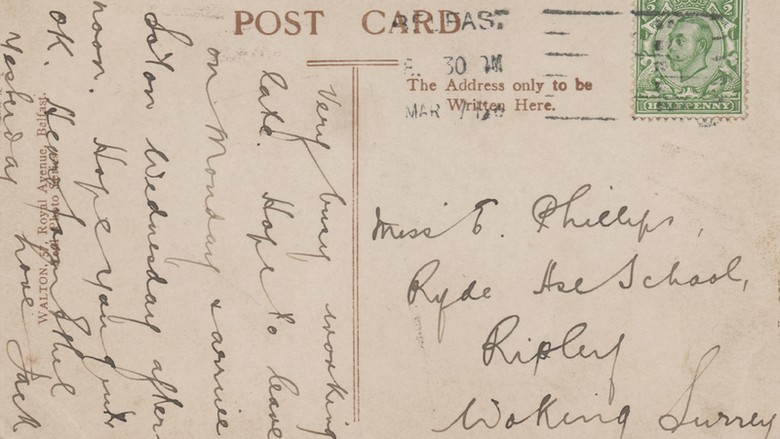 POST CARD
The Address only to be
Written Here.
30
MAR
HALFPENNY
Very busy working
late. Hope to leave
on Monday & arrive
Wednesday after-
noon. Hope you
OK. Heard from Ethel
Yesterday Love Jack
WALTON, Royal Avenue, Belfast.
Miss E. Phillips,
Ryde Hse School,
Ripley
Woking Surrey